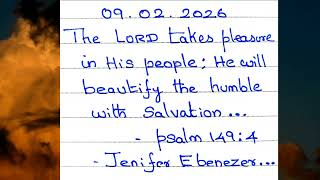 09.02.2026
The LORD takes pleasure
in His people; He will
beautify the humble
with Salvation...
- psalm 149:4
- Jenifer Ebenezer...